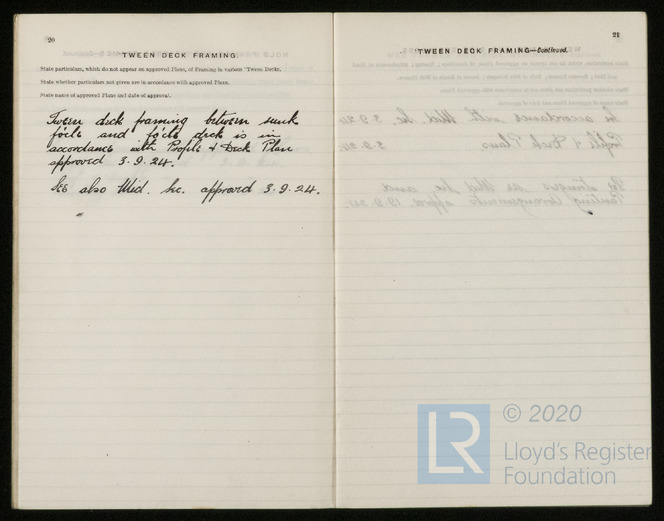 20
TWEEN DECK FRAMING.
State particulars, which do not appear on approved Plans, of Framing in various 'Tween Decks.
State whether particulars not given are in accordance with approved Plans.
State name of approved Plans and date of approval.
Tween deck framing between sunk
fo'cle and fo'cle deck is in
accordance with Profile & Deck Plan
approved 3.9.24.
See also Mid. Sec. approved 3.9.24.
21
TWEEN DECK FRAMING—Continued.
LR
© 2020
Lloyd's Register
Foundation